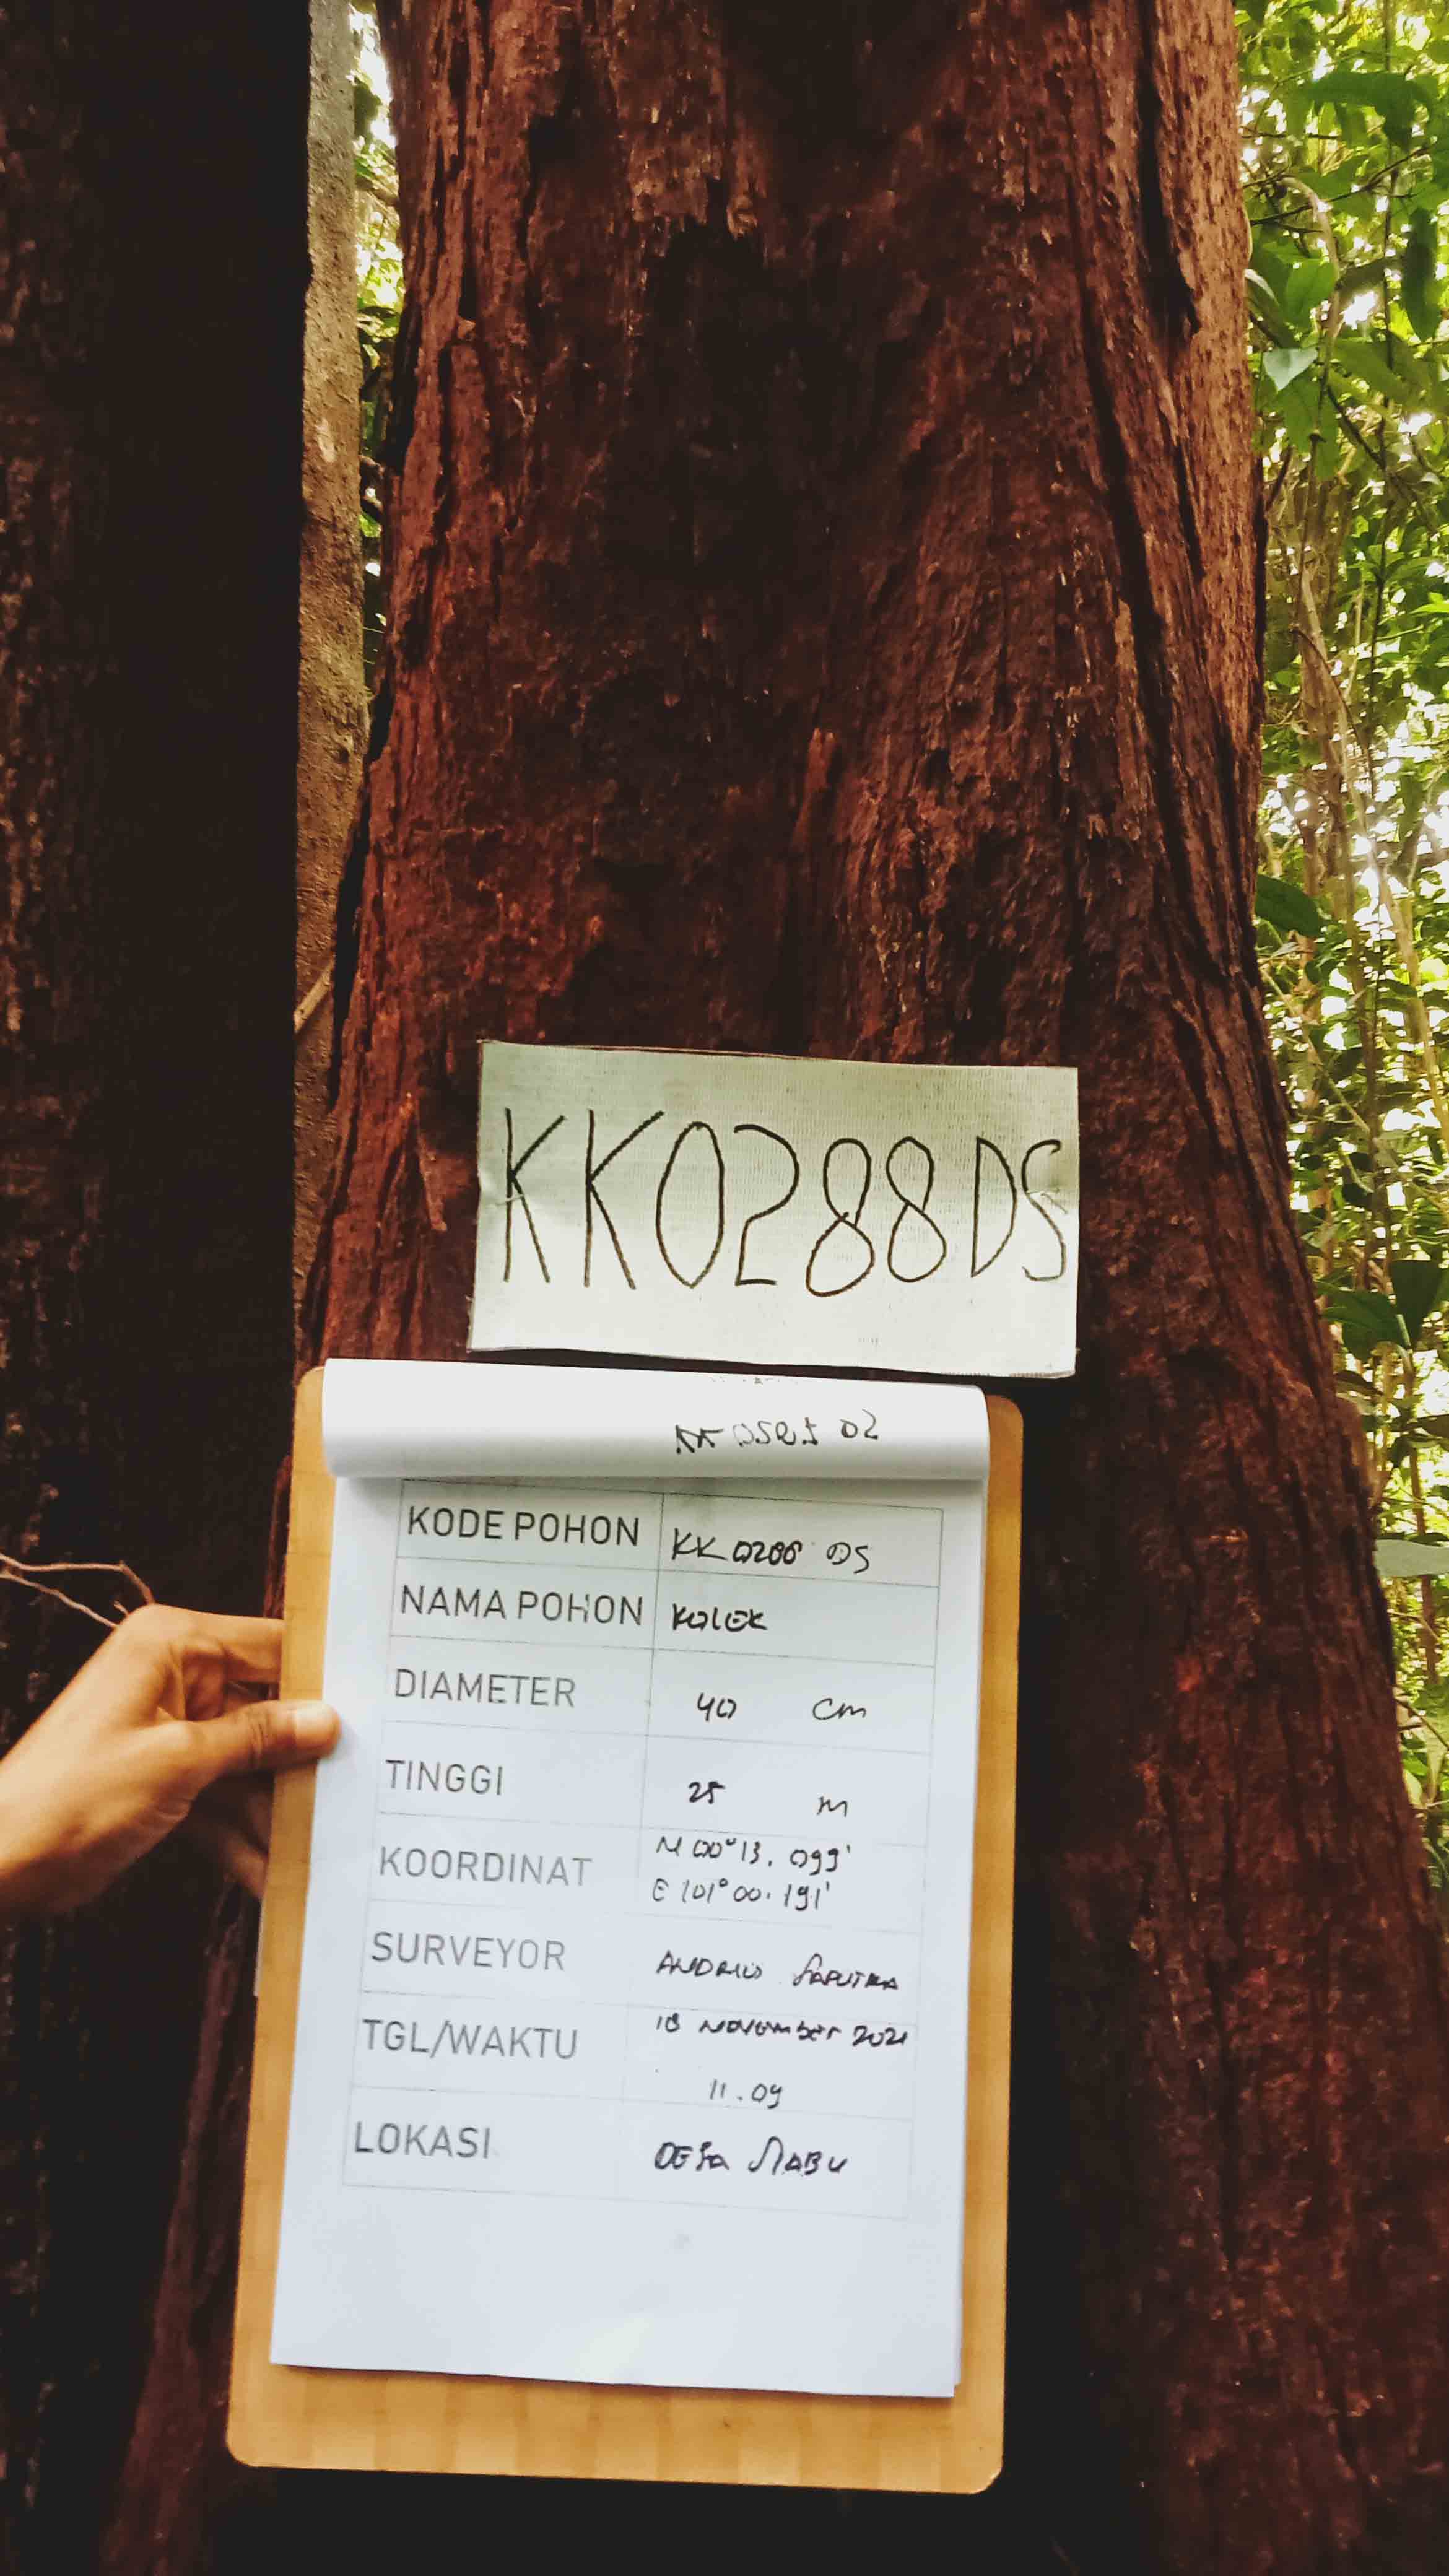 KK0288DS
KODE POHON KK 0288 DS
NAMA POHON KOLEK
DIAMETER 40 cm
TINGGI 25 m
KOORDINAT N 00° 13. 099'
E 101° 00. 191'
SURVEYOR SAPUTRA
TGL/WAKTU 18 November 2021
11.09
LOKASI DESA